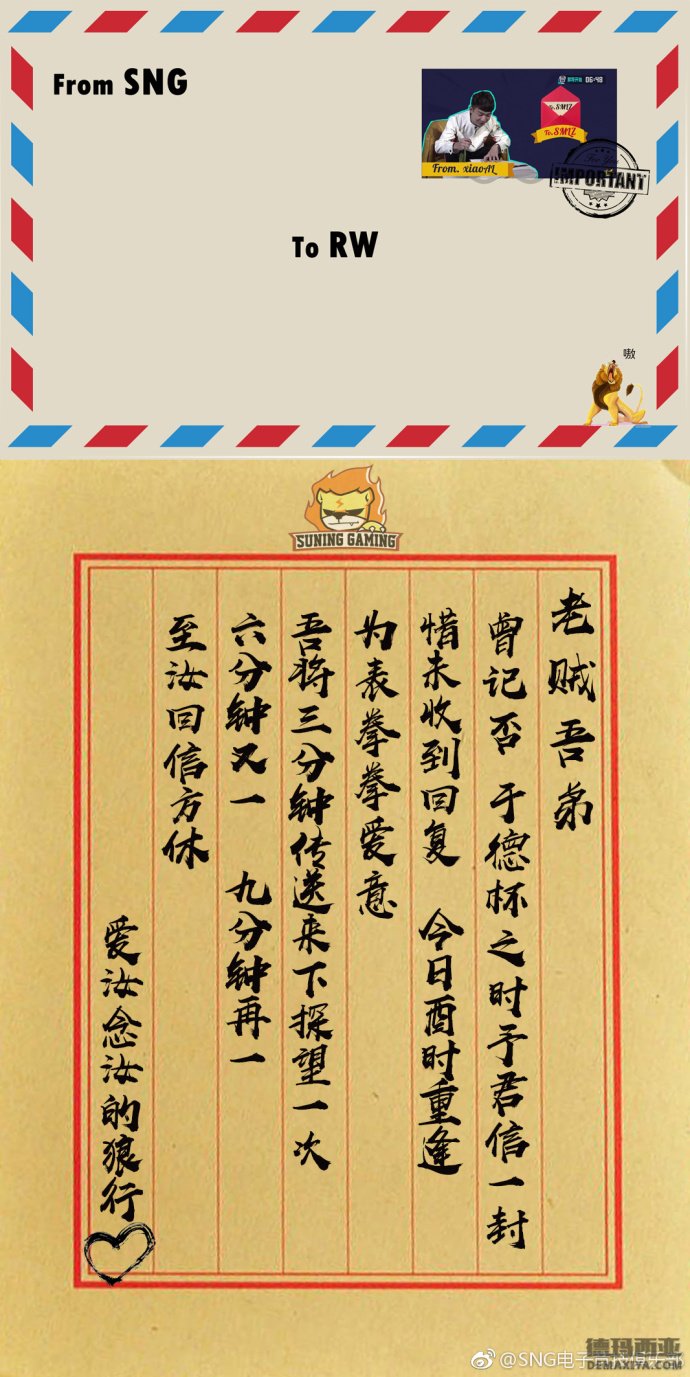 From SNG
06:48
To. SM1Z
To. SM1Z
From. xiaoAL
For You
IMPORTANT
To RW
嗷
SUNING GAMING
老贼吾弟
曾记否 于德杯之时予君信一封
惜未收到回复 今日酉时重逢
为表拳拳爱意
吾将三分钟传送来下探望一次
六分钟又一 九分钟再一
至汝回信方休
爱汝念汝的狼行
德玛西亚
@SNG电子
DEMAXIYA.COM